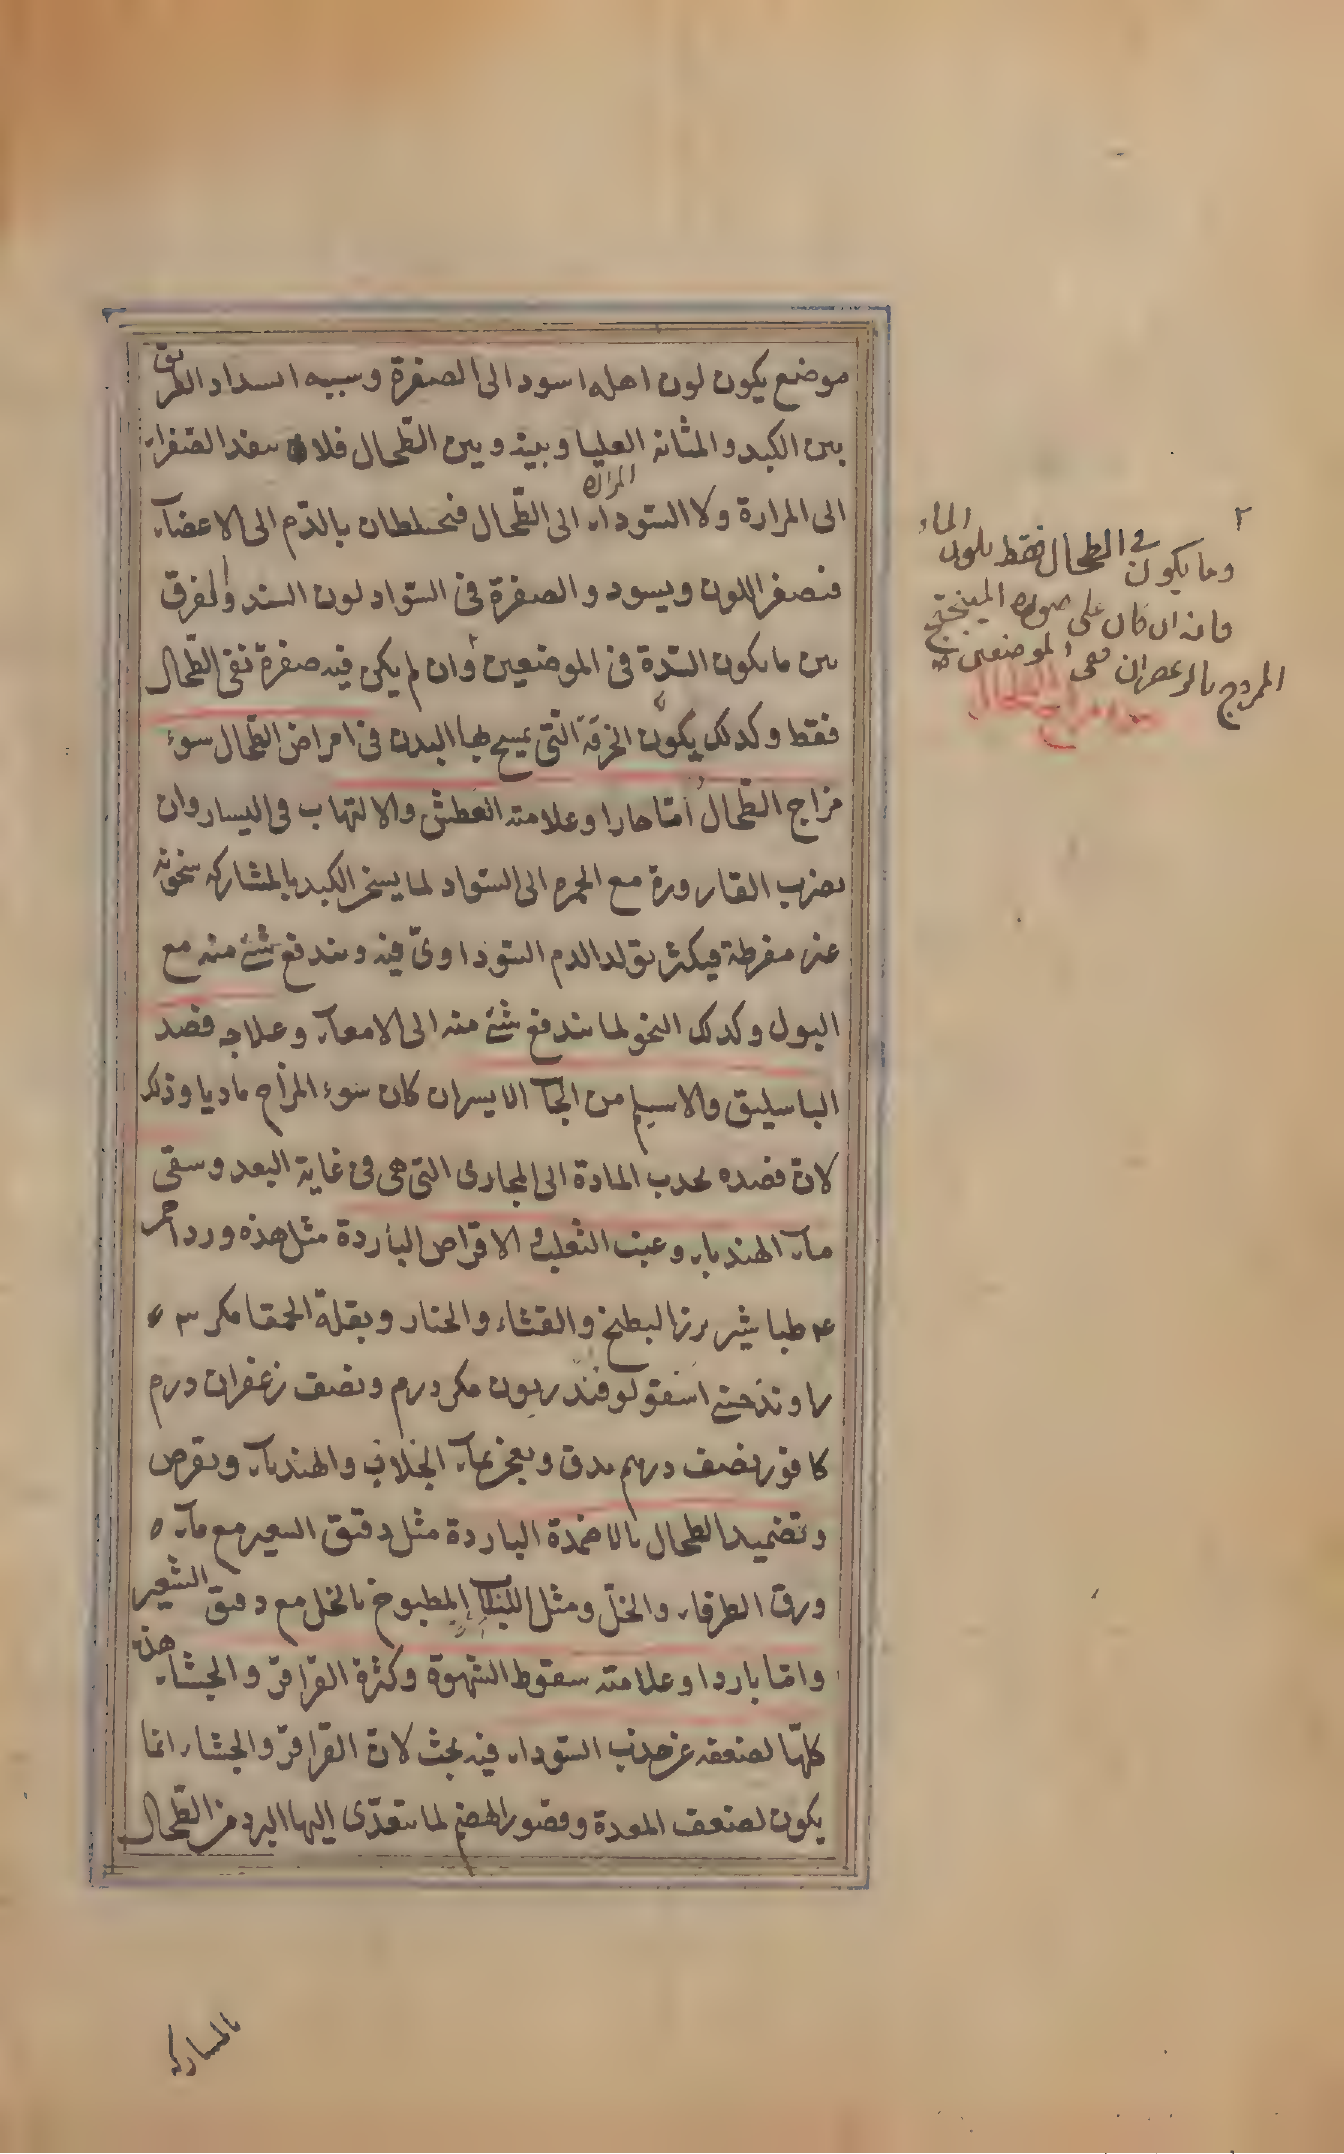 موضع يكون لون اهله اسود الى الصفرة وسببه انسداد الطريق
بين الكبد والمثانه العليا وبينه وبين الطّحال فلا ينفذ الصّفراء
المرارة
الى المرارة ولا السّوداء الى الطّحال فتختلطان بالدّم الى الاعضآء
فتصفر اللون ويسود والصفرة فى السّواد لون السند والفرق
بين ما يكون السّدة فى الموضعين وان لم يكن فيه صفرة نفى الطّحال
فقط وكذلك يكون الخرقة الّتى يمسح بها البدن فى امراض الطّحال سوء
مزاج الطّحال امّا حارا وعلامته العطش والالتهاب فى اليسار وان
يضرب القارورة مع الحمره الى السّواد لما يسخن الكبد بالمشاركه سخونه
غير مفرطة فيكثر تولد الدم السّوداوىّ فيه ويندفع شئ منه مع
البول وكذلك النحو لما يندفع شئ منه الى الامعآء وعلاجه فصد
الباسليق والاسيلم من الجآنب الايسر ان كان سوء المزاج ماديا وذلك
لانّ فصده يجذب المادة الى المجارى التى هى فى غاية البعد وسقى
مآء الهندباء وعنب الثعلب والاقراص الباردة مثل هذه ورد احمر
۴ طباشير بزر البطيخ والقثاء والخيار وبقلة الحمقا مكر ٣
راوند چينى اسقولوقندريون مكر درم ونصف زعفران درم
كافور نصف درهم يدق ويعجن بمآء الخلاف والهندبآء ويقرص
وتضميد الطحال بالاضمدة الباردة مثل دقيق الشعير مع مآء
ورق الطرفاء والخلّ ومثل اللبلاب المطبوخ بالخل مع دقيق الشعير
وامّا باردا وعلامته سقوط الشهوة وكثرة القراقر والجشاء هذه
كلّها لضعفه عن جذب السّوداء فيه بحث لانّ القراقر والجشاء انما
يكون لضعف المعدة وقصور الهضم لما يتعدّى اليها البرد من الطّحال
٢
وما يكون فى الطحال فقط يلون الماء
فانه ان كان على صوره الميفختج
الممزوج بالزعفران ففى الموضعين
امراض الطحال
بالمشاركه